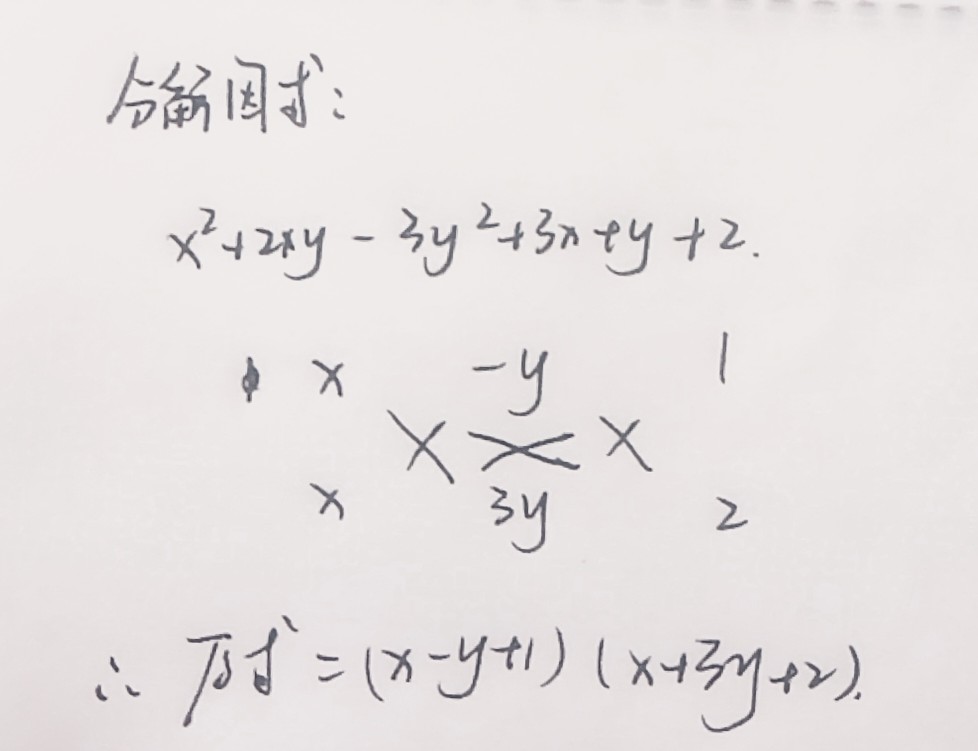 分解因式：
x²+2xy-3y²+3x+y+2.
x -y 1
× × ×
x 3y 2
∴ 原式=(x-y+1)(x+3y+2).